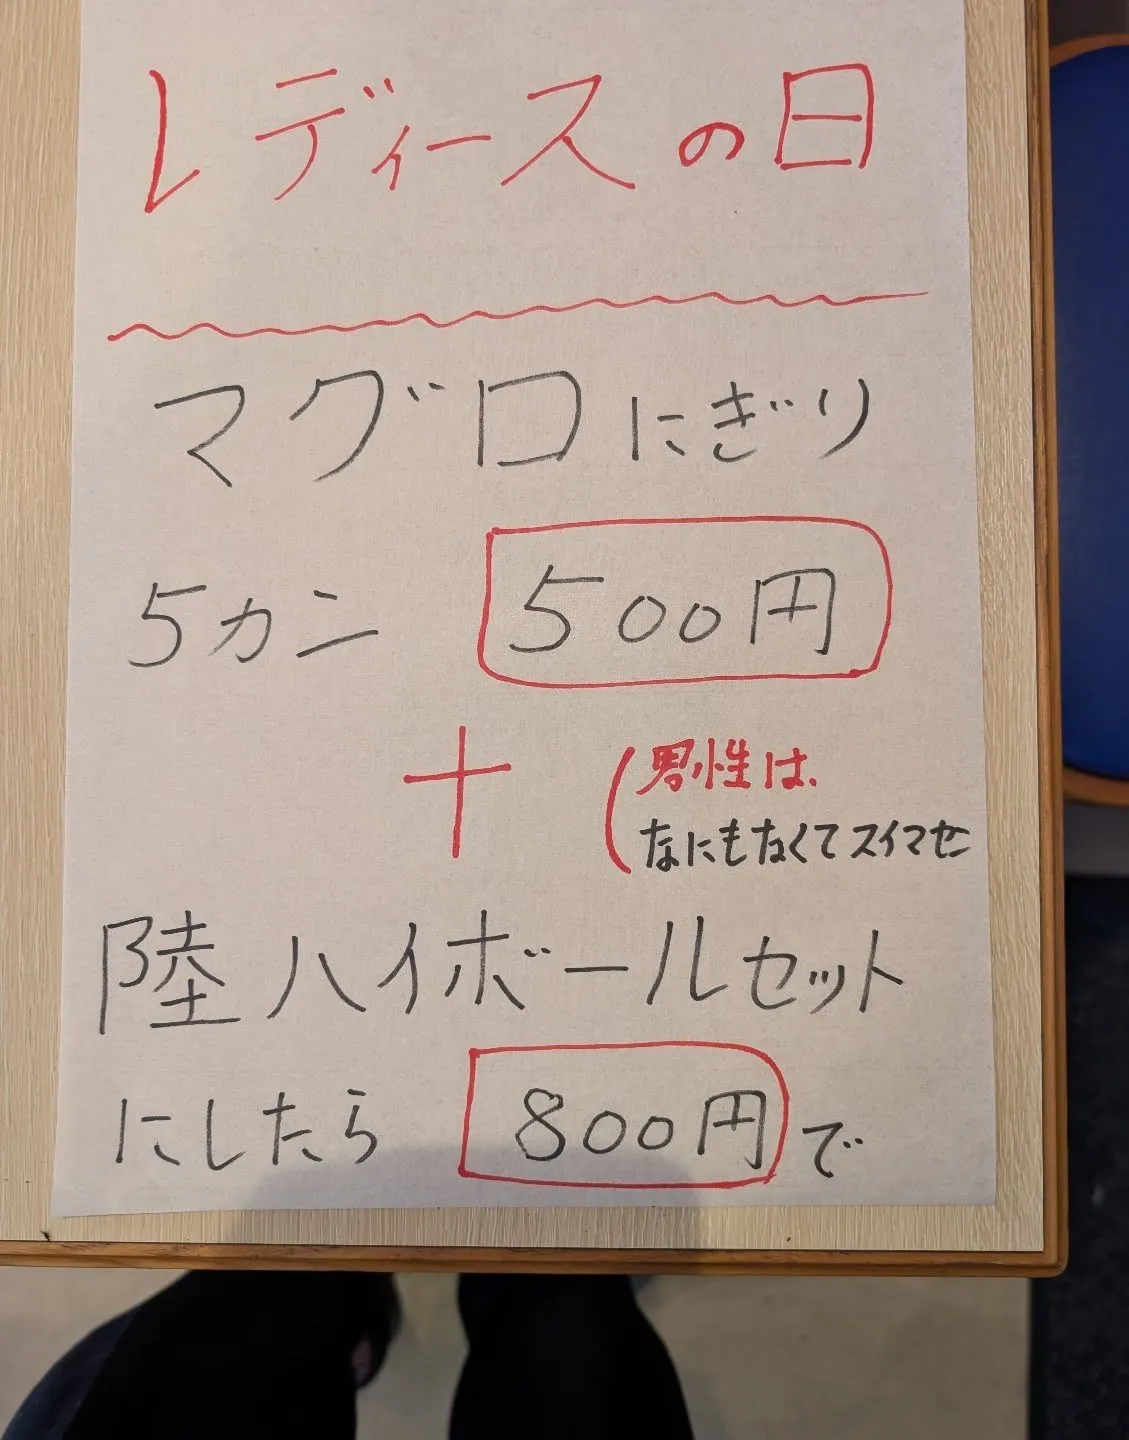 レディースの日
マグロにぎり
5カン 500円
+
(男性は、
なにもなくてスイマセン
陸ハイボールセット
にしたら 800円で